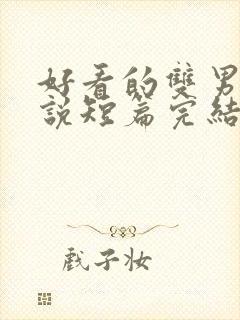 好看的雙男
說短篇完結
戲子妝